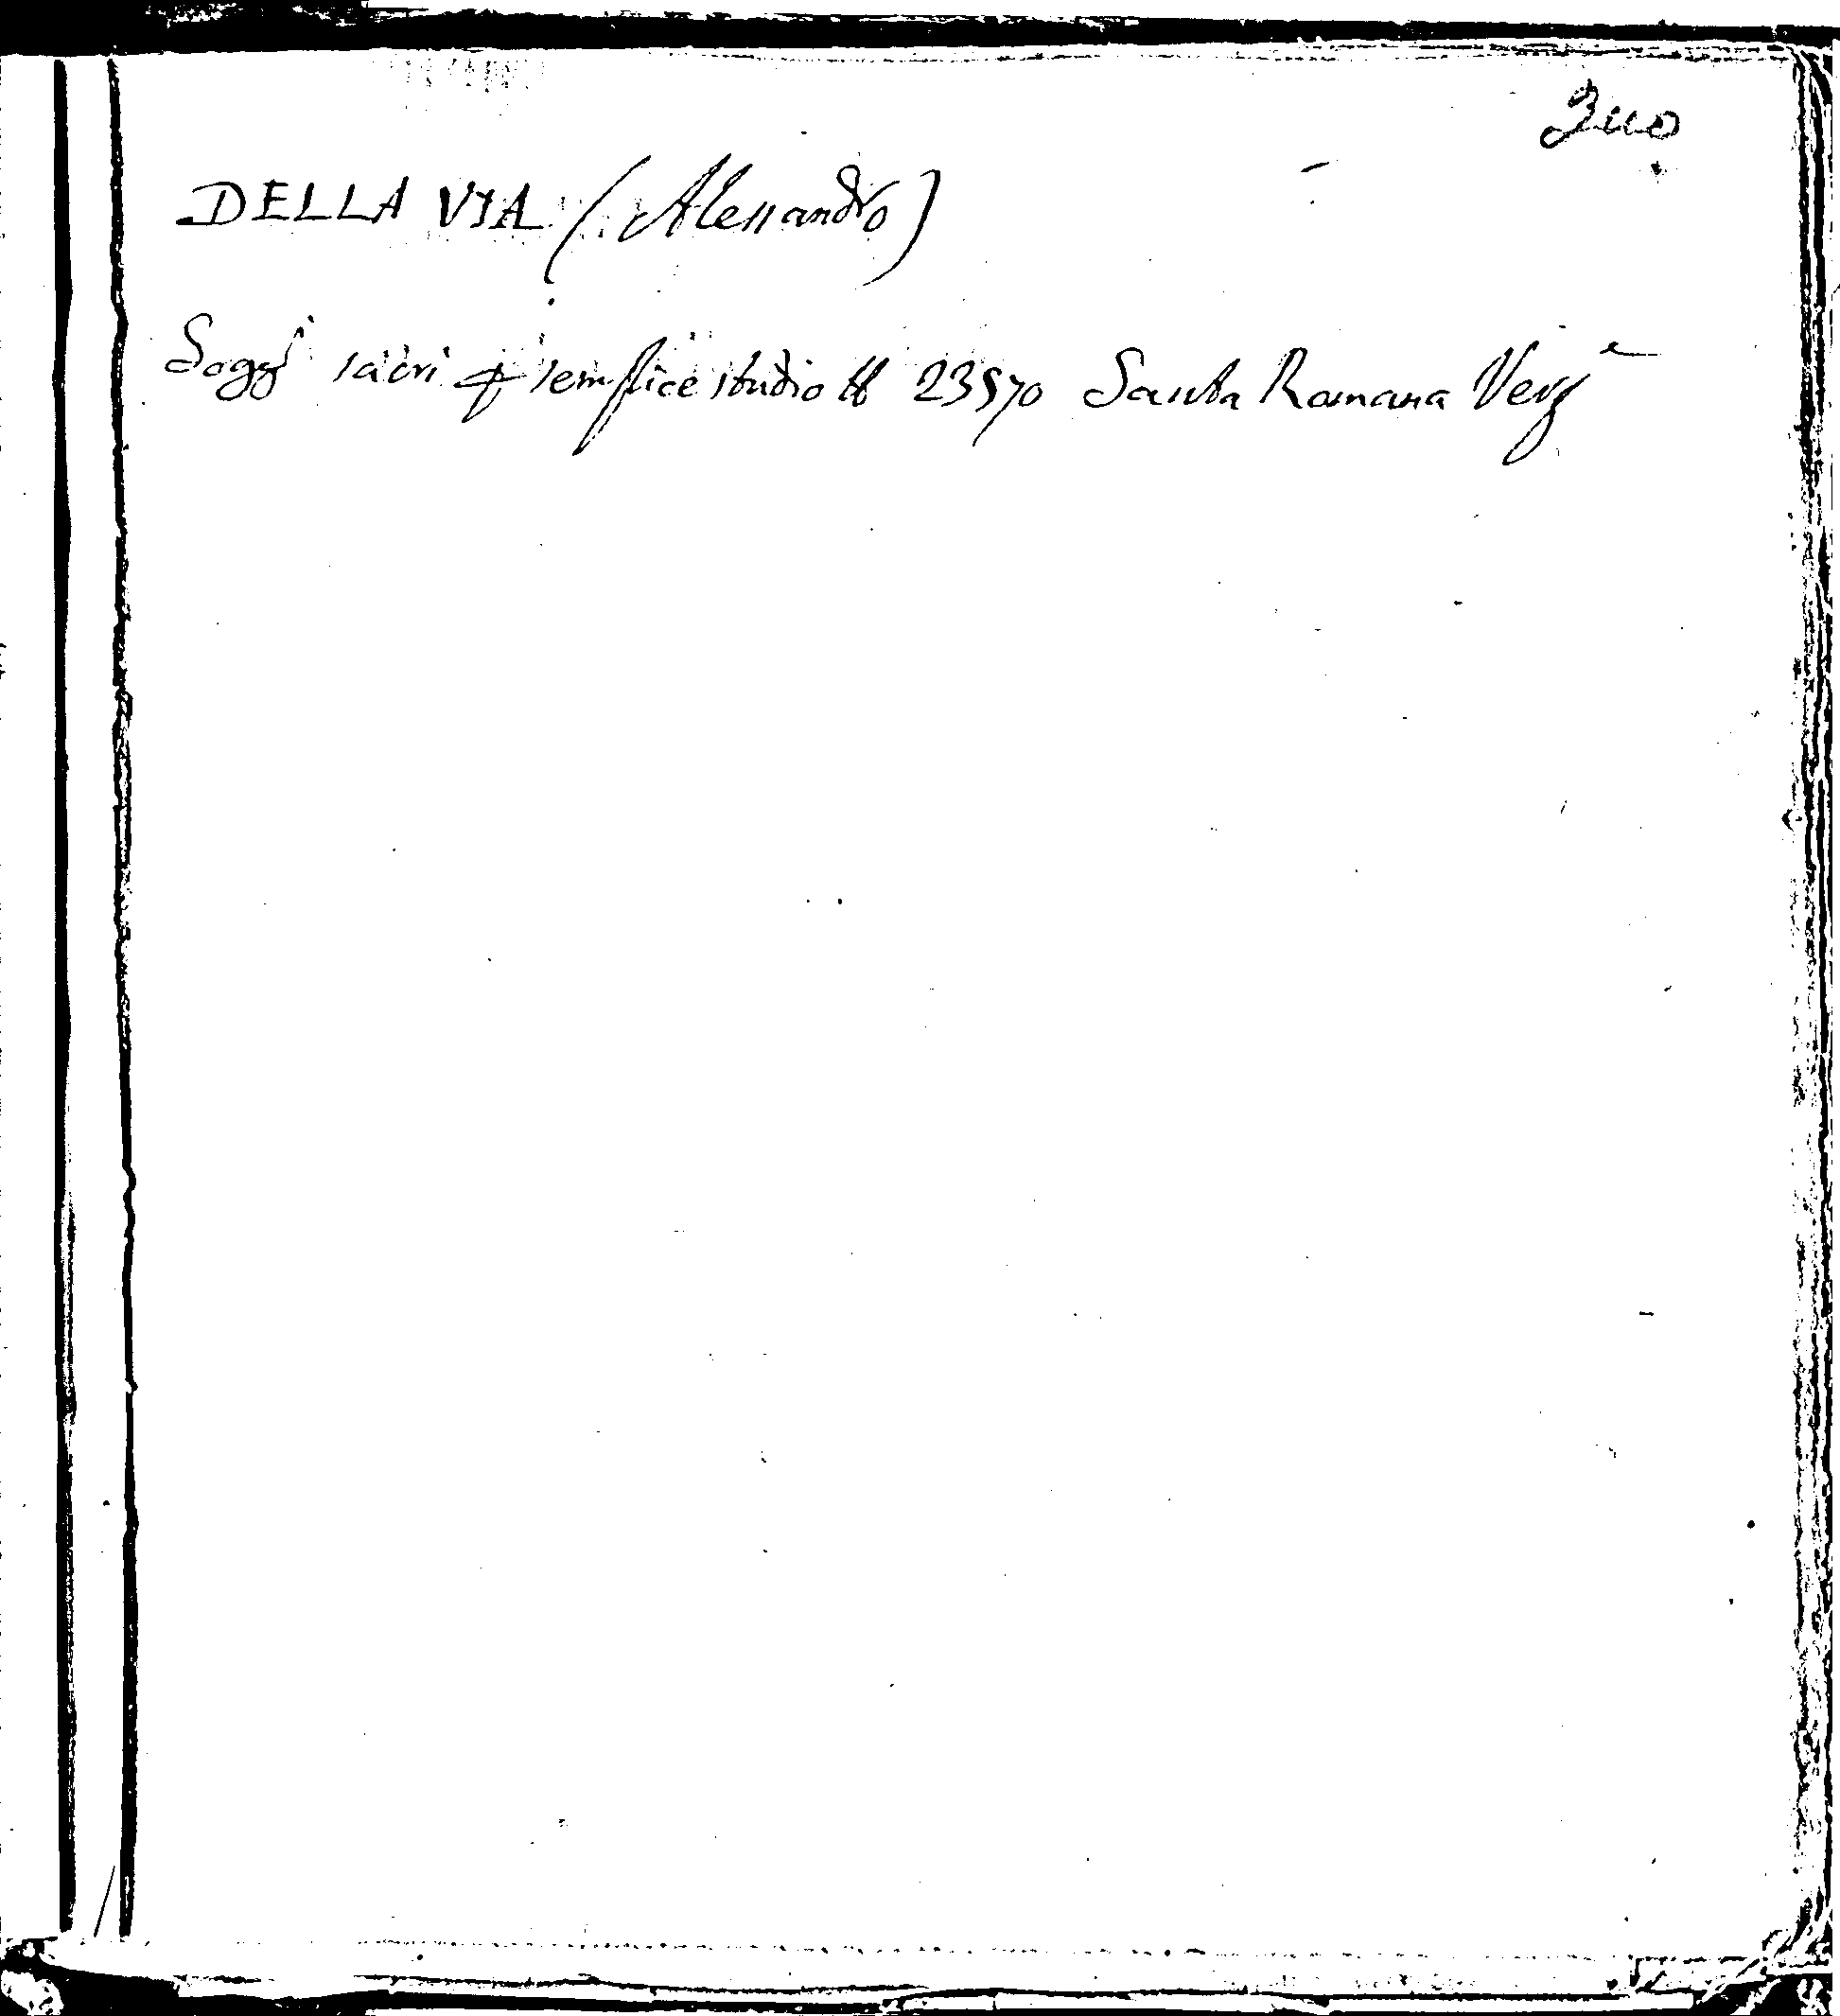 DELLA VIA (Alessandro)
Sogg.ti sacri p semplice studio H 23570 Santa Romana Verg.e